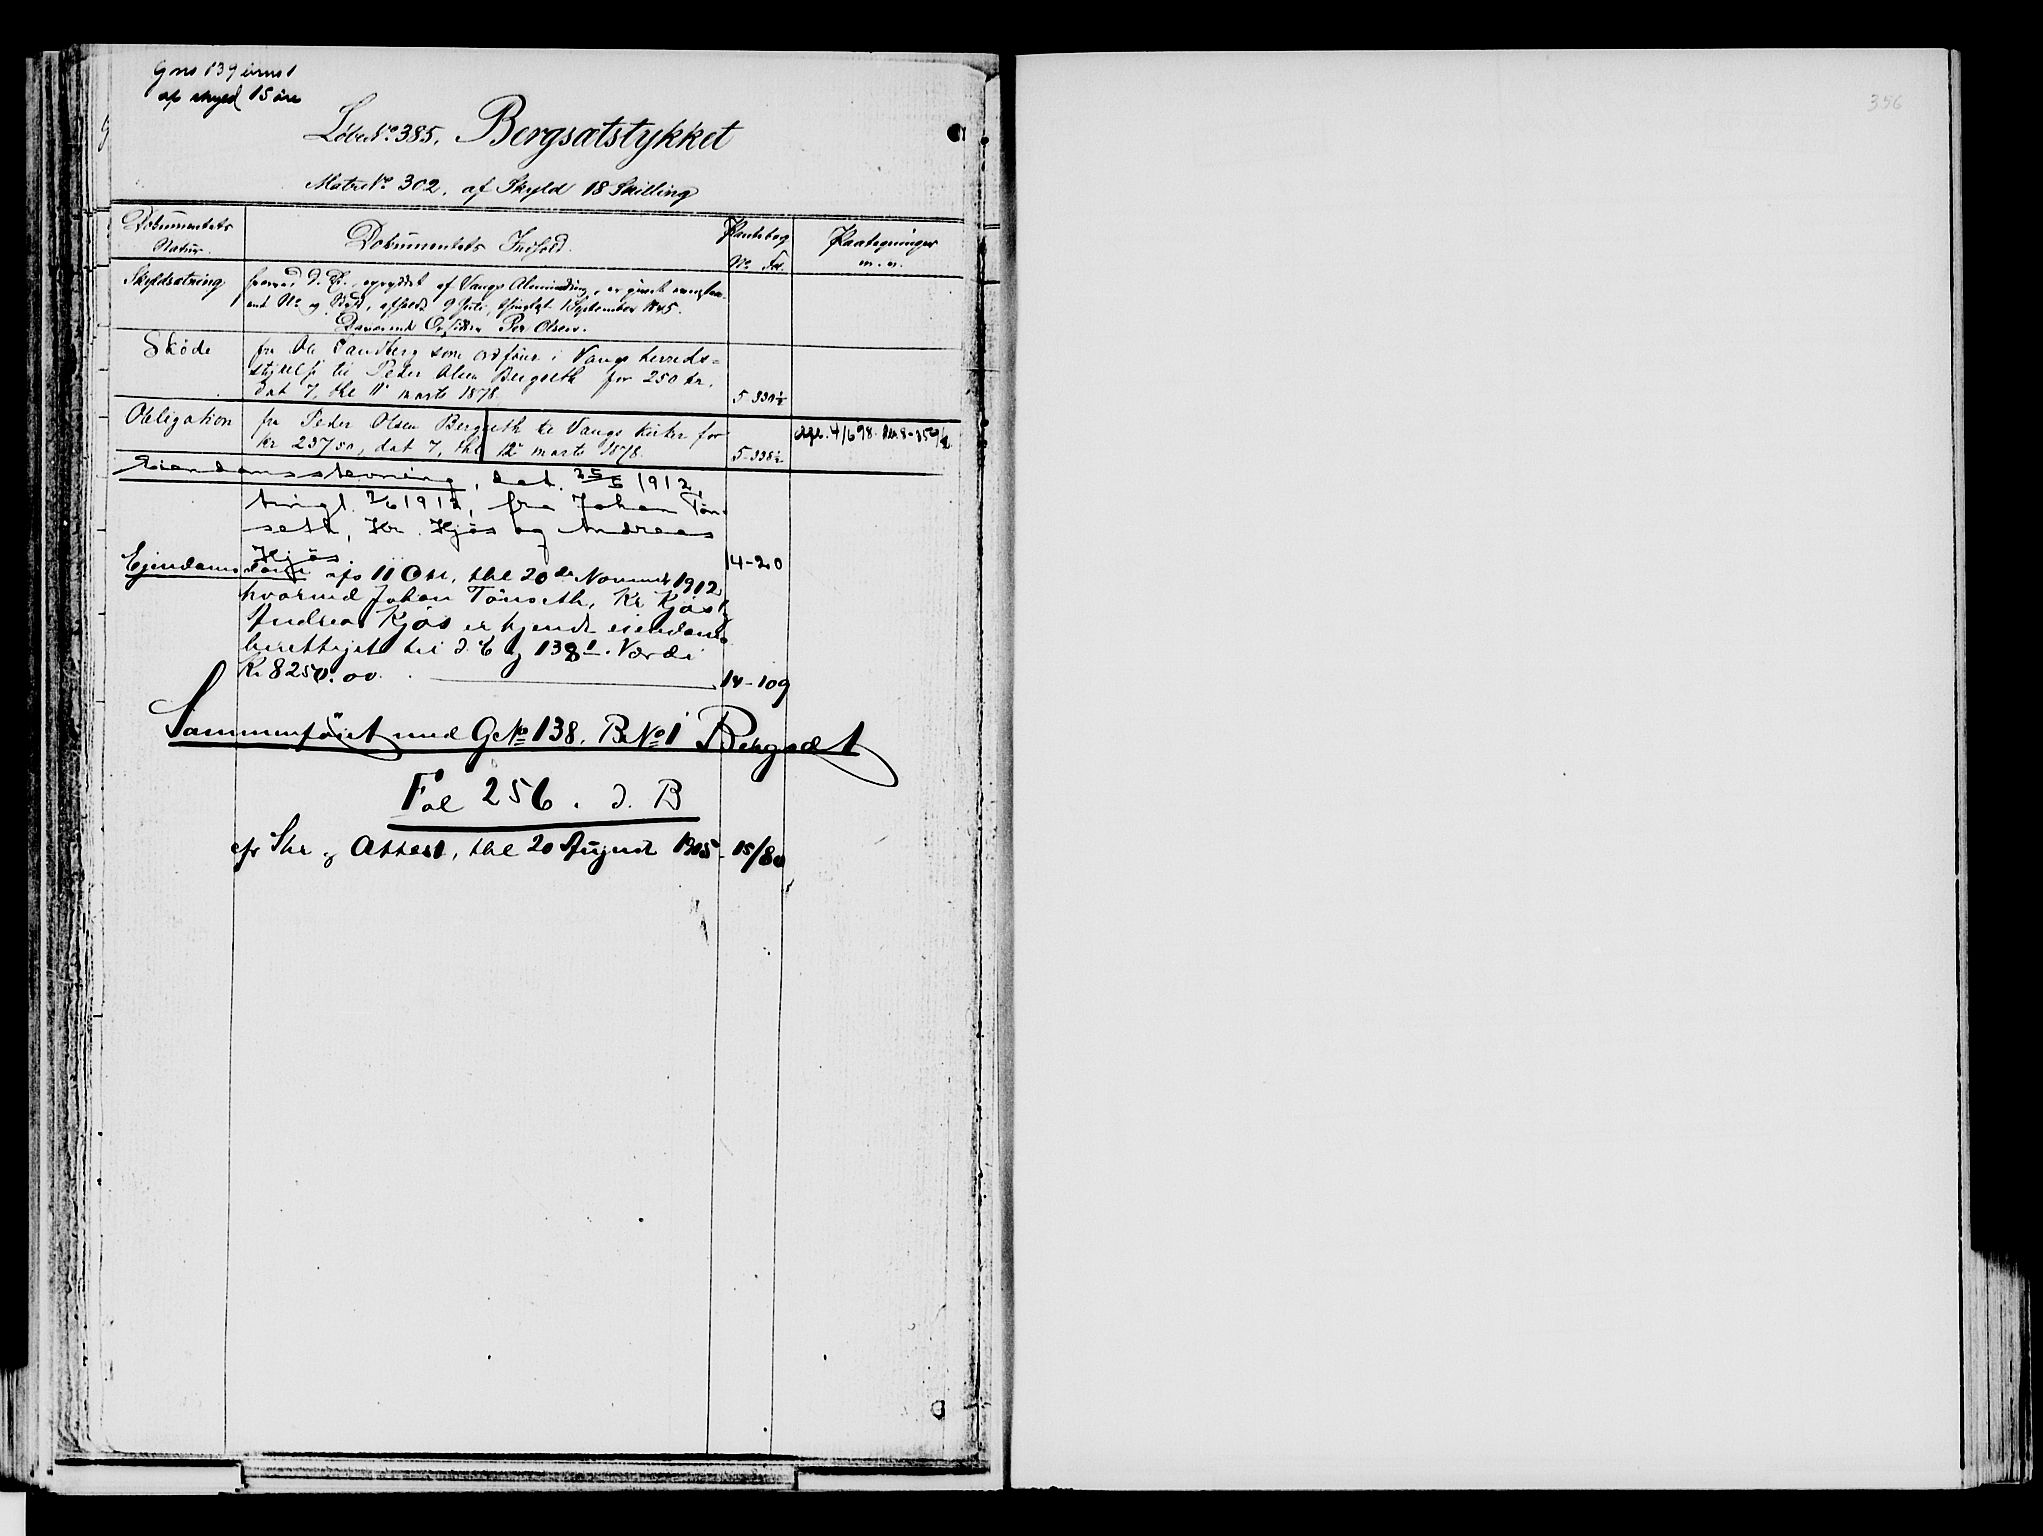 Gno 139 bruns 1
af skyld 15 öre
LöbeNo 385. Bergsætstykket
MatrNo 302. af Skyld 18 Skilling
Dokumentets Natur.
Dokumentets Indhold.
Pantebog No Fol.
Paategninger m. v.
Skyldsætning
hvorved d. E., opryddet af Vangs Alminding, er givet
No og Skyld, afholdt 9 Juli, thinglyst 1 September 1845.
Daværende Opsidder Per Olsen.
Sköde
fra Ole Sandberg som ordförer i Vangs herreds=
styrelse til Peder Olsen Bergseth for 250 kr.
dat 7, thl 11 marts 1878.
5-338½
Obligation
fra Peder Olsen Bergseth til Vangs kirke for
kr 237,50, dat 7, thl 12 marts 1878.
5-338½
4/6 98.
Eiendomsstevning, dat. 25/5 1912,
tingl. 1912, fra Johan Tön-
seth, Kr. Kjös og Andreas
Kjös.
14-20
Ejendoms
Dom afs 11 Okt, thl 20de November 1912
hvorved Johan Tönseth, Kr Kjös &
Andreas Kjös er kjendt eiendoms
berettiget til d. E og 138/1. Værdi
Kr 8250.00.
14-109
Sammenföiet med GNo 138. BNo 1 Bergsæt
Fol 256. d. B
cfr Skr og Attest, thl 20 August 1915 - 15/80
356